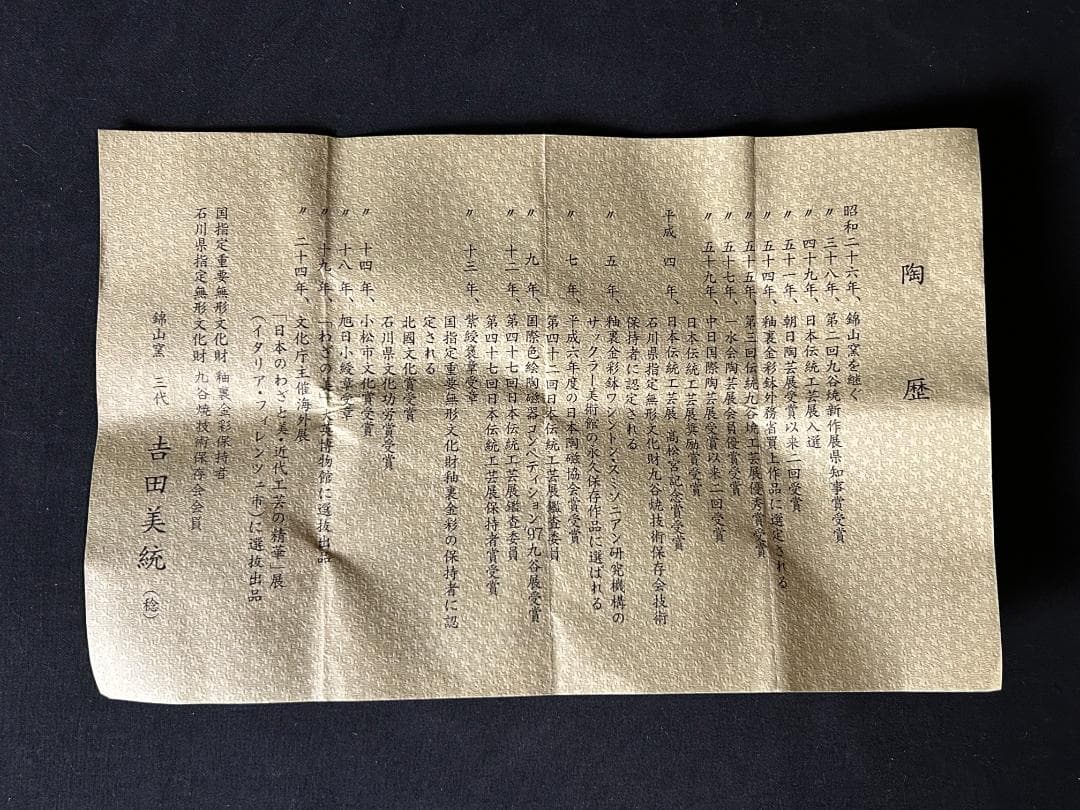 陶歴
昭和二十六年、錦山窯を継ぐ
〃三十八年、第二回九谷焼新作展県知事賞受賞
〃四十九年、日本伝統工芸展入選
〃五十一年、朝日陶芸展受賞以来二回受賞
〃五十四年、釉裏金彩鉢外務省買上作品に選定される
〃五十五年、第三回伝統九谷焼工芸展優秀賞受賞
〃五十七年、一水会陶芸展会員優賞受賞
〃五十九年、中日国際陶芸展受賞以来二回受賞
日本伝統工芸展奨励賞受賞
平成四年、日本伝統工芸展 高松宮記念賞受賞
石川県指定無形文化財九谷焼技術保存会技術
保持者に認定される
〃五年、釉裏金彩鉢ワシントン・スミソニアン研究機構の
サックラー美術館の永久保存作品に選ばれる
〃七年、平成六年度の日本陶磁協会賞受賞
第四十二回日本伝統工芸展鑑査委員
〃九年、国際色絵陶磁器コンペティション'97九谷展受賞
〃十二年、第四十七回日本伝統工芸展鑑査委員
第四十七回日本伝統工芸展保持者賞受賞
〃十三年、紫綬褒章受章
国指定重要無形文化財釉裏金彩の保持者に認
定される
北國文化賞受賞
石川県文化功労賞受賞
〃十四年、小松市文化賞受賞
〃十八年、旭日小綬章受章
〃十九年、「わざの美」大英博物館に選抜出品
〃二十四年、文化庁主催海外展
「日本のわざと美・近代工芸の精華」展
(イタリア・フィレンツェ市)に選抜出品
国指定重要無形文化財 釉裏金彩保持者
石川県指定無形文化財 九谷焼技術保存会会員
錦山窯 三代 吉田美統(稔)